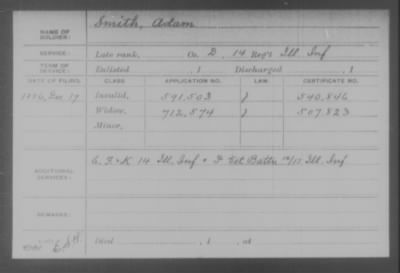 NAME OF SOLDIER: Smith, Adam
SERVICE: Late rank, Co. D, 14 Reg't Ill. Inf
TERM OF SERVICE: Enlisted , 1 Discharged , 1
DATE OF FILING. CLASS APPLICATION NO. LAW. CERTIFICATE NO.
1886, Dec 17 Invalid, 591,503 ) 540,846
Widow, 712,874 ) 507,823
Minor,
ADDITIONAL SERVICES: G. F. & K 14 Ill. Inf & F Ill. Inf
REMARKS:
Died , 1 , at